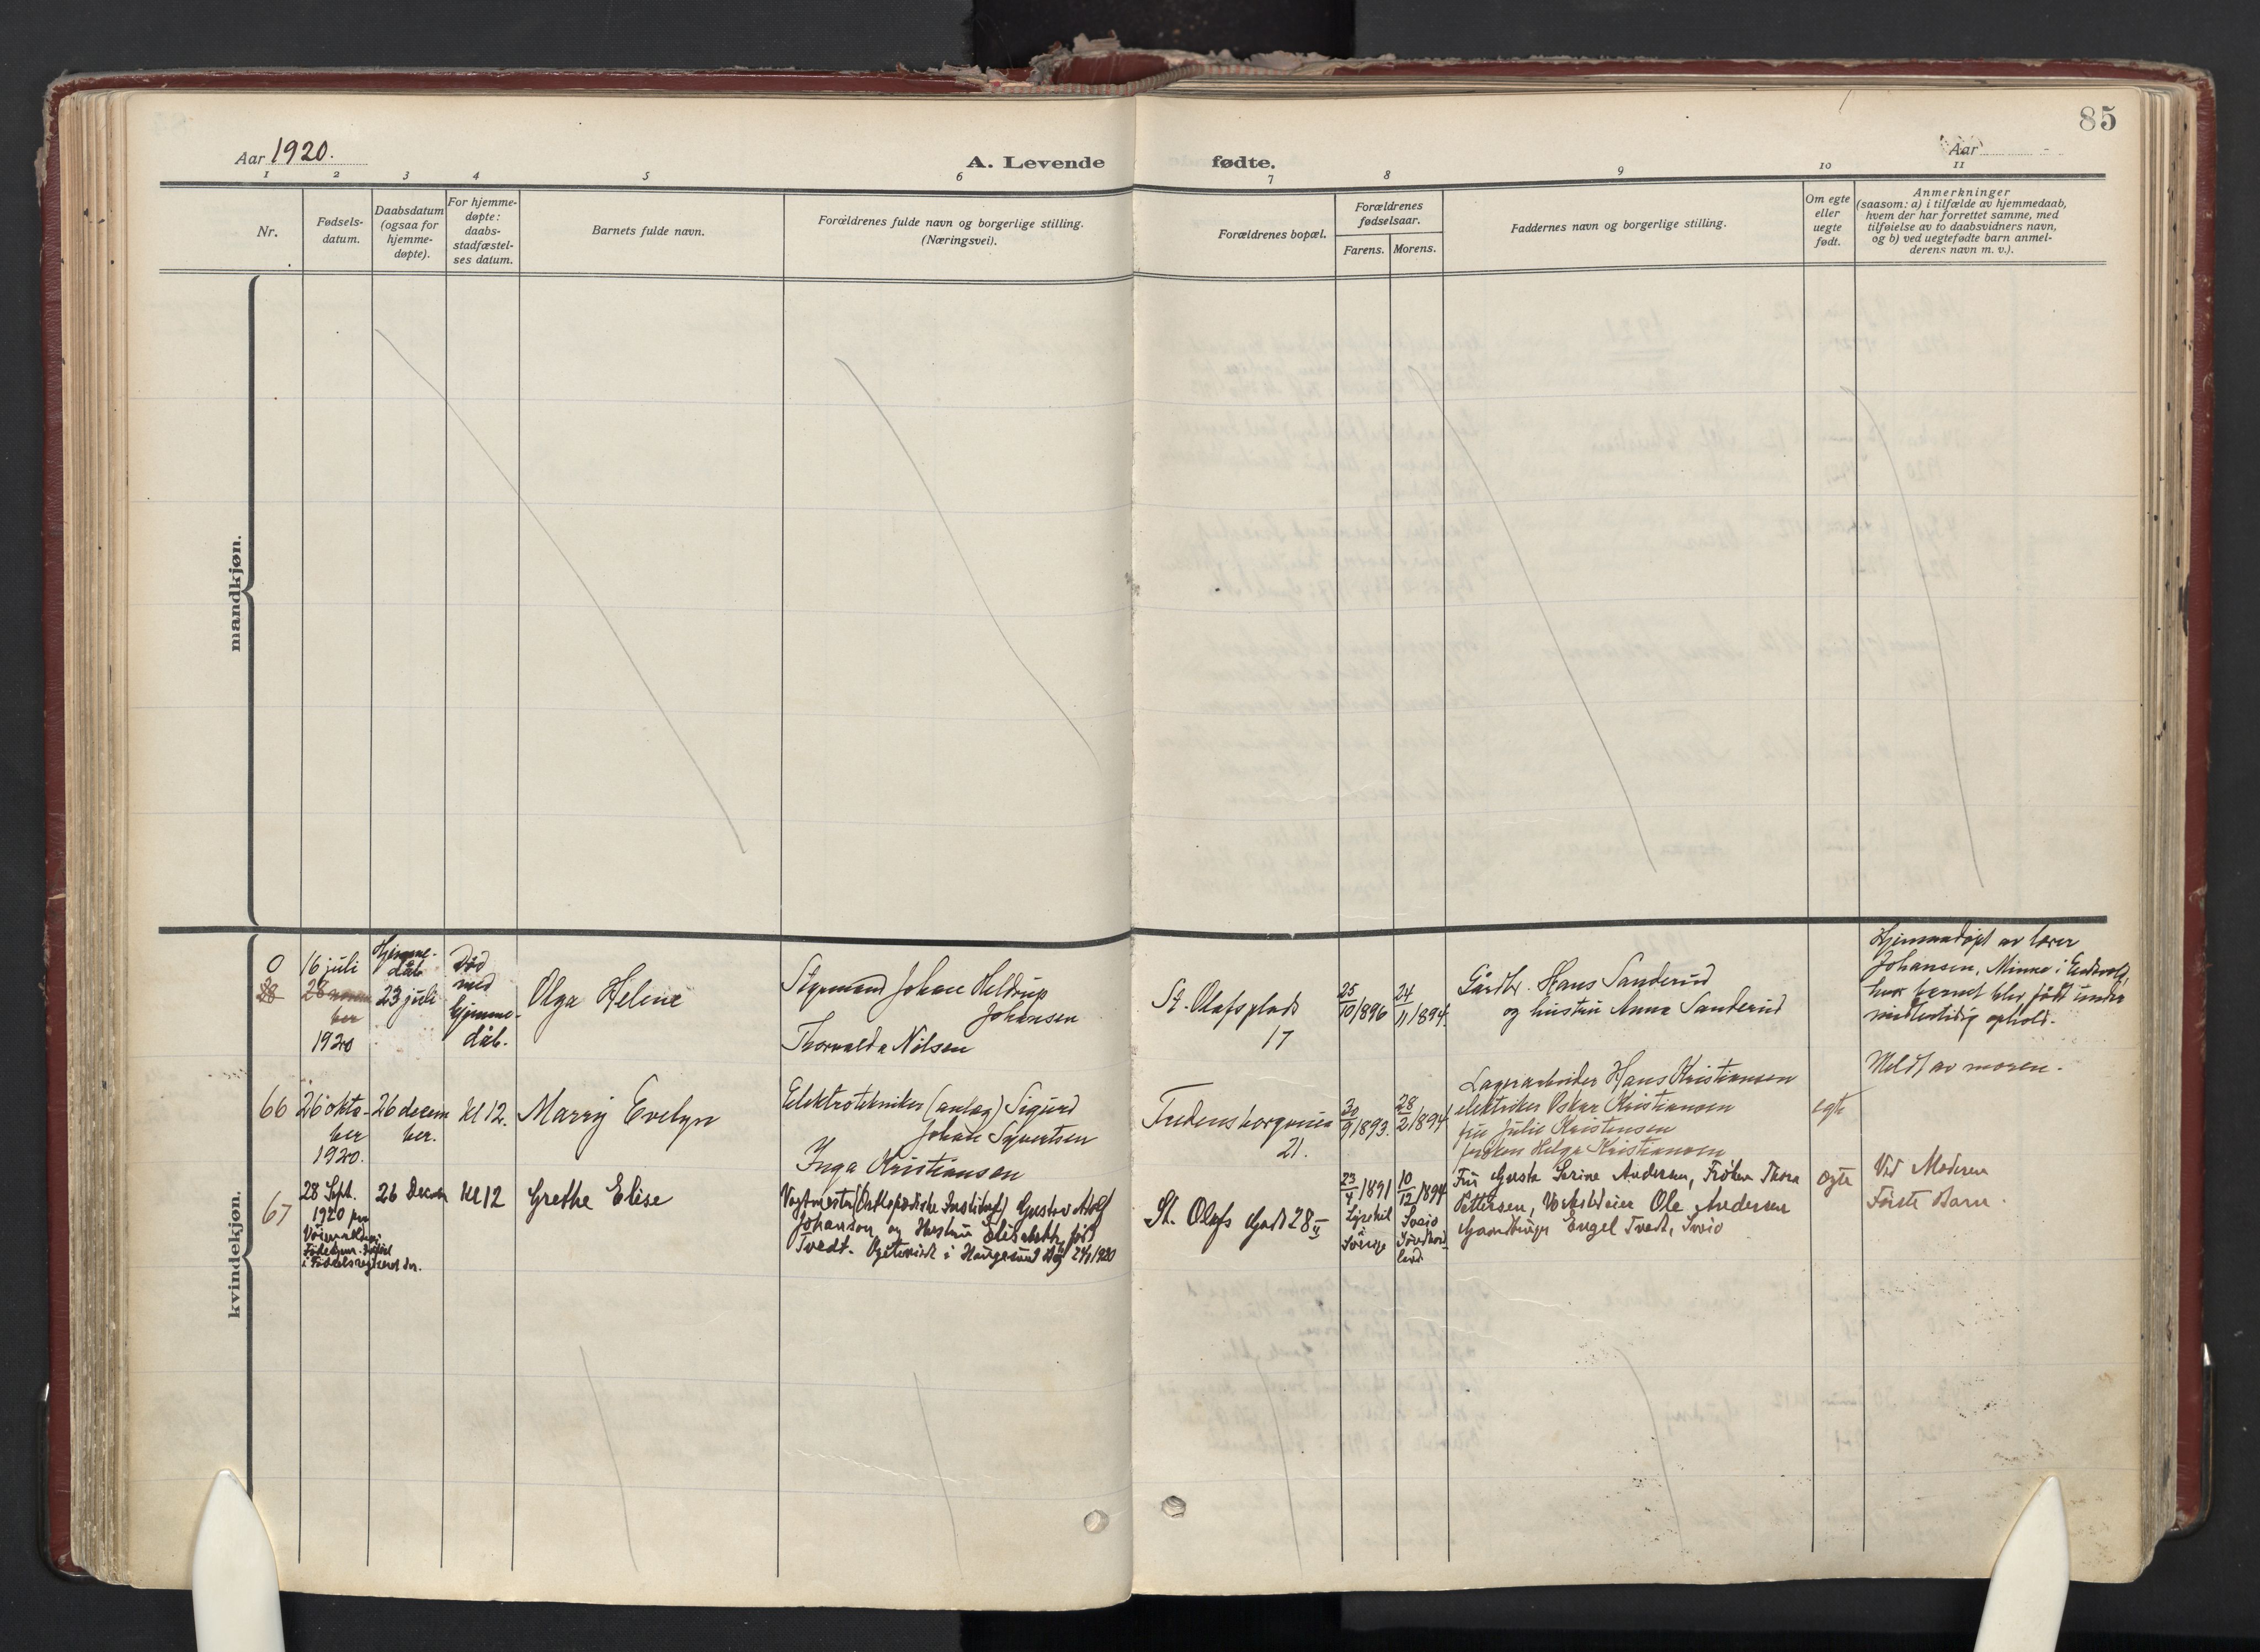 85
Aar 1920.
A. Levende fødte.
Aar
1 2 3 4 5 6 7 8 9 10 11
Nr.
Fødsels-
datum.
Daabsdatum
(ogsaa for
hjemme-
døpte).
For hjemme-
døpte:
daabs-
stadfæstel-
ses datum.
Barnets fulde navn.
Forældrenes fulde navn og borgerlige stilling.
(Næringsvei).
Forældrenes bopæl.
Forældrenes
fødselsaar.
Farens. Morens.
Faddernes navn og borgerlige stilling.
Om egte
eller
uegte
født.
Anmerkninger
(saasom: a) i tilfælde av hjemmedaab,
hvem der har forrettet samme, med
tilføielse av to daabsvidners navn,
og b) ved uegtefødte barn anmel-
derens navn m. v.).
mandkjøn.
kvindekjøn.
0
28
16 juli
28
ber
1920
Hjemme-
dåb
23 juli
Död
med
hjemme-
dåb.
Olga Helene
Styrmand Johan Heldrup
Johansen
Thorvalda Nilsen
St. Olafsplads
17
25/10 1896
24/11 1894.
Gårdbr. Hans Sanderud
og hustru Anna Sanderud
Hjemmedøpt av lærer
Johansen, Minne i Eidsvold,
hvor barnet blev født under
midlertidig ophold.
Meldt av moren.
66
26 okto-
ber
1920.
26 decem
ber.
Kl 12.
Marry Evelyn
Elektrotekniker (anlæg) Sigurd
Johan Syvertsen
Inga Kristiansen
Fredensborgveien
21.
30/9 1893.
28/2 1894
Lagerarbeider Hans Kristiansen
elektriker Oskar Kristiansen
fru Julie Kristensen
frøken Helga Kristiansen
egte
67
28 Sept.
1920 paa
26 Decem
Kl 12
Grethe Elise
Vagtmester (Orthopædiske Institut) Gustav Adolf
Johanson og Hustru Elisabeth, født
Tvedt. Egteviet i Haugesund
St. Olafs Gade 28 II
23/4 1891
Lysekil
Sverige
10/12 1894
Sveio
Söndhord-
land.
Fru Gusta Serine Andersen, Frøken Thora
Pettersen, Verkseier Ole Andersen
Gaardbruger Engel Tvedt, Sveio
egte
Ved Moderen
Første Barn.